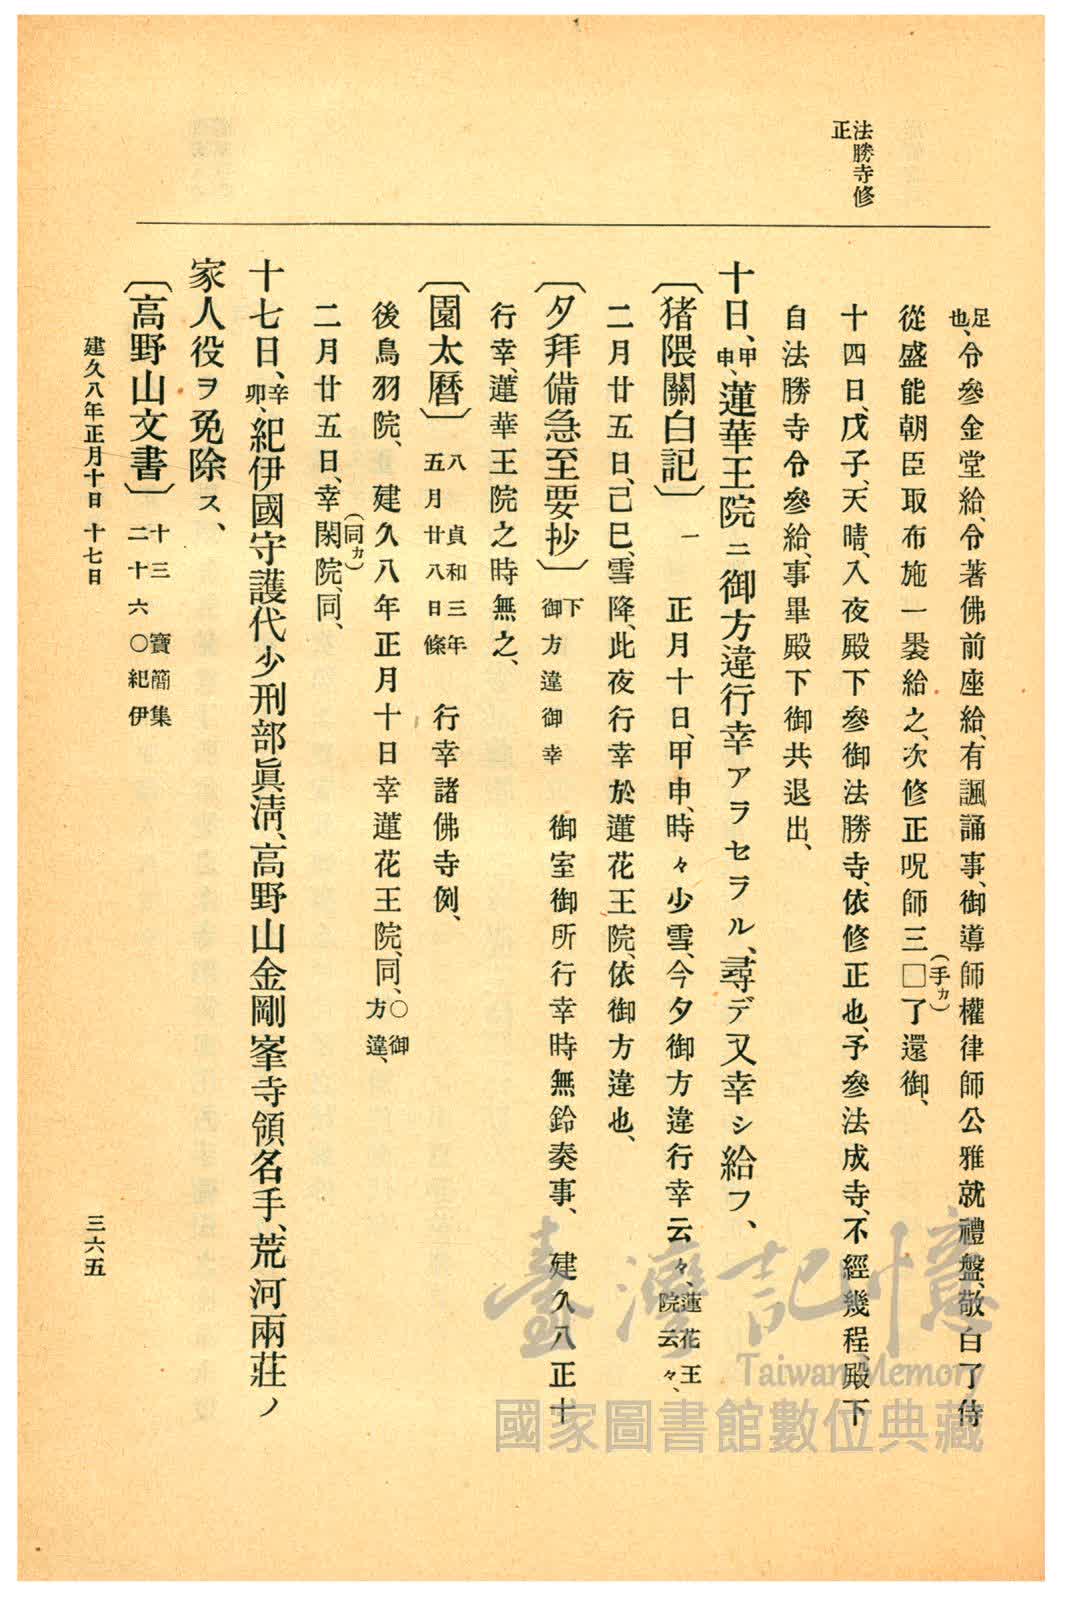 法勝寺修
正
足
也、令參金堂給、令著佛前座給、有諷誦事、御導師權律師公雅就禮盤、敬白了侍
從盛能朝臣取布施一褁給之、次修正呪師三□(手カ)了還御、
十四日、戊子、天晴、入夜殿下參御法勝寺、依修正也、予參法成寺、不經幾程、殿下
自法勝寺令參給、事畢殿下御共退出、
十日、甲申、蓮華王院ニ御方違行幸アラセラル、尋デ又幸シ給フ、
〔猪隈關白記〕一 正月十日、甲申、時々少雪、今夕御方違行幸云々、蓮花王院云々、
二月廿五日、己巳、雪降、此夜行幸於蓮花王院、依御方違也、
〔夕拜備急至要抄〕下 御方違御幸 御室御所行幸時無鈴奏事、 建久八正十
行幸、蓮華王院之時無之、
〔園太曆〕八 貞和三年五月廿八日條 行幸諸佛寺例、
後鳥羽院、 建久八年正月十日幸蓮花王院、同、○御方違、
二月廿五日、幸閑院、(同カ)同、
十七日、辛卯、紀伊國守護代少刑部眞淸、高野山金剛峯寺領名手、荒河兩莊ノ
家人役ヲ免除ス、
〔高野山文書〕十三 寶簡集二十六 ○紀伊
建久八年正月十日 十七日
三六五
臺灣記憶
Taiwan Memory
國家圖書館數位典藏